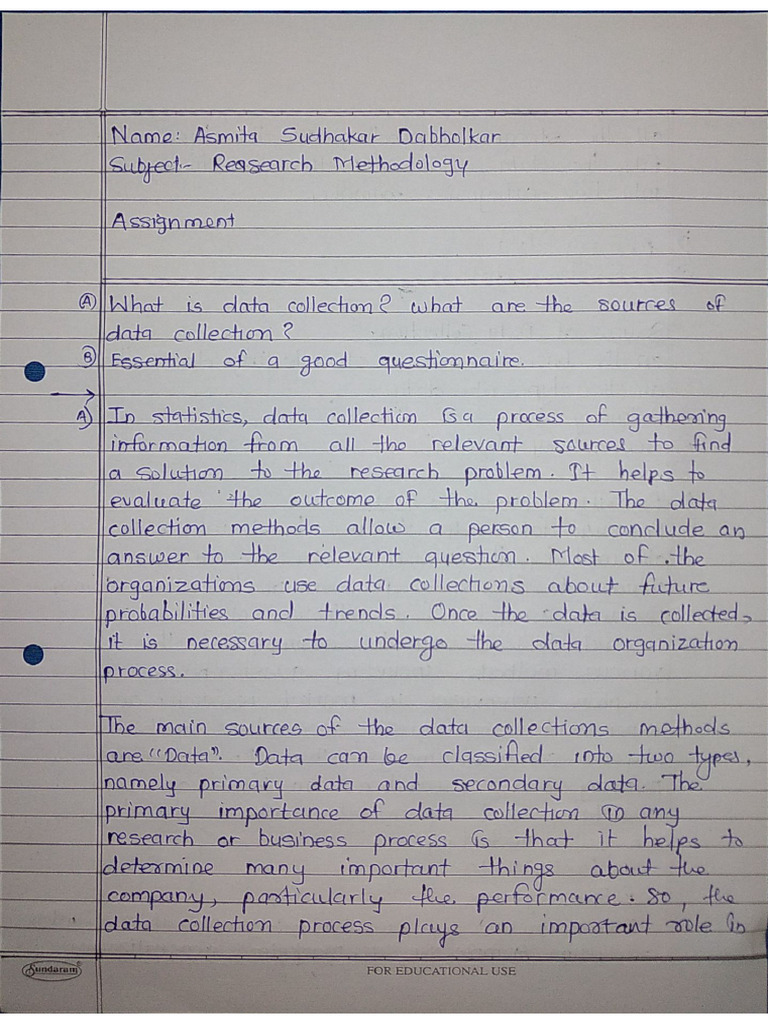 Name: Asmita Sudhakar Dabholkar
Subject:- Reasearch Methodology
Assignment
(A) What is data collection? what are the sources of
data collection?
(B) Essential of a good questionnaire.
A) In statistics, data collection is a process of gathering
information from all the relevant sources to find
a solution to the research problem. It helps to
evaluate the outcome of the problem. The data
collection methods allow a person to conclude an
answer to the relevant question. Most of the
organizations use data collections about future
probabilities and trends. Once the data is collected,
it is necessary to undergo the data organization
process.
The main sources of the data collections methods
are "Data". Data can be classified into two types,
namely primary data and secondary data. The
primary importance of data collection in any
research or business process is that it helps to
determine many important things about the
company, particularly the performance. So, the
data collection process plays an important role in
Sundaram
FOR EDUCATIONAL USE